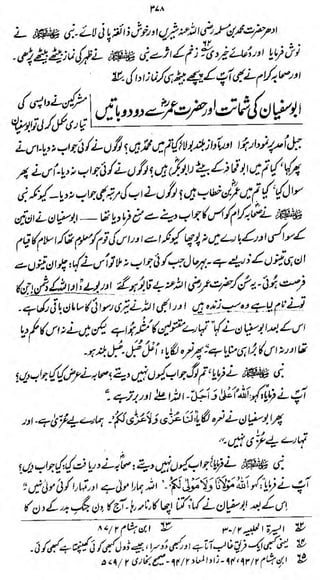 ۳۷۸
ادھر حضرت محمد بن مسلمہ رضی اللہ عنہ شیریں اور خوش ذائقہ پانی لائے۔ نبی ﷺ نے
نوش فرمایا اور دعائے خیر دی۔ زخم کے اثر سے نبی ﷺ نے ظہر کی نماز بیٹھے بیٹھے پڑھی۔
اور صحابہ کرام نے بھی آپ کے پیچھے بیٹھ ہی کر نماز ادا کی۔
ابوسفیان کی شماتت اور حضرت عمرؓ سے دو دو باتیں
مشرکین نے واپسی کی
تیاری مکمل کر لی تو ابوسفیان
جبل اُحد پر نمودار ہوا اور بآواز بلند بولا: کیا تم میں محمدؐ ہیں؟ لوگوں نے کوئی جواب نہ دیا۔ اس نے
پھر کہا، کیا تم میں ابوقحافہ کے بیٹے (ابوبکرؓ) ہیں؟ لوگوں نے کوئی جواب نہ دیا۔ اُس نے پھر
سوال کیا، کیا تم میں عمرؓ بن خطاب ہیں؟ لوگوں نے اب کی مرتبہ بھی جواب نہ دیا — کیونکہ نبی
ﷺ نے صحابہ کرام کو اس کا جواب دینے سے منع فرما دیا تھا — ابوسفیان نے ان تین
کے سوا کسی اور کے بارے میں نہ پوچھا کیونکہ اسے اور اس کی قوم کو معلوم تھا کہ اسلام کا قیام
ان ہی تینوں کے ذریعے ہے۔ بہرحال جب کوئی جواب نہ ملا تو اُس نے کہا: چلو ان تینوں سے
فرصت ہوئی۔ یہ سُن کر حضرت عمر رضی اللہ عنہ بے قابو ہو گئے اور بولے: او اللہ کے دشمن! جن کا
تو نے نام لیا ہے وہ سب زندہ ہیں اور ابھی اللہ نے تیری رسوائی کا سامان باقی رکھا ہے۔
اس کے بعد ابوسفیان نے کہا، تمہارے مقتولین کا مُثلہ ہوا ہے لیکن میں نے نہ اس کا حکم دیا
تھا اور نہ اس کا بُرا ہی منایا ہے۔ پھر نعرہ لگایا: اُعلُ ہُبَل۔ ہُبَل بلند ہو۔
نبی ﷺ نے فرمایا، تم لوگ جواب کیوں نہیں دیتے؟ صحابہ نے عرض کیا: کیا جواب دیں؟
آپ نے فرمایا: کہو: اَللهُ أَعْلٰى وَأَجَلّ۔ اللہ اعلیٰ اور برتر ہے۔
پھر ابوسفیان نے نعرہ لگایا: لَنَا عُزّٰى وَلَا عُزّٰى لَكُمْ۔ ہمارے لیے عزّٰی ہے۔ اور
تمہارے لیے عزّٰی نہیں۔
نبی ﷺ نے فرمایا، جواب کیوں نہیں دیتے؟ صحابہ نے دریافت کیا: کیا جواب دیں؟
آپ نے فرمایا: کہو اَللهُ مَوْلَانَا وَلَا مَوْلٰى لَكُمْ۔ اللہ ہمارا مولیٰ ہے اور تمہارا کوئی مولیٰ نہیں۔
اس کے بعد ابوسفیان نے کہا، کتنا اچھا کارنامہ رہا۔ آج کا دن جنگِ بدر کے دن کا
السیرۃ الحلبیہ ۲/۳۰
ابن ہشام ۲/۸۷
یعنی کبھی ایک فریق غالب آتا ہے اور کبھی دوسرا، جیسے ڈول کبھی کوئی کھینچتا ہے کبھی کوئی۔
ابن ہشام ۲/۹۳، ۹۴۔ زاد المعاد ۲/۹۴۔ صحیح بخاری ۲/۵۷۹